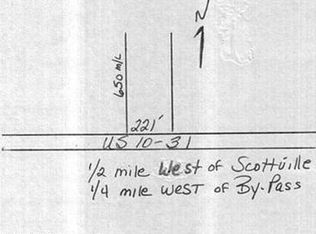 N
650 M/L
221'
US 10-31
1/2 mile West of Scottville
1/4 mile WEST of By-Pass